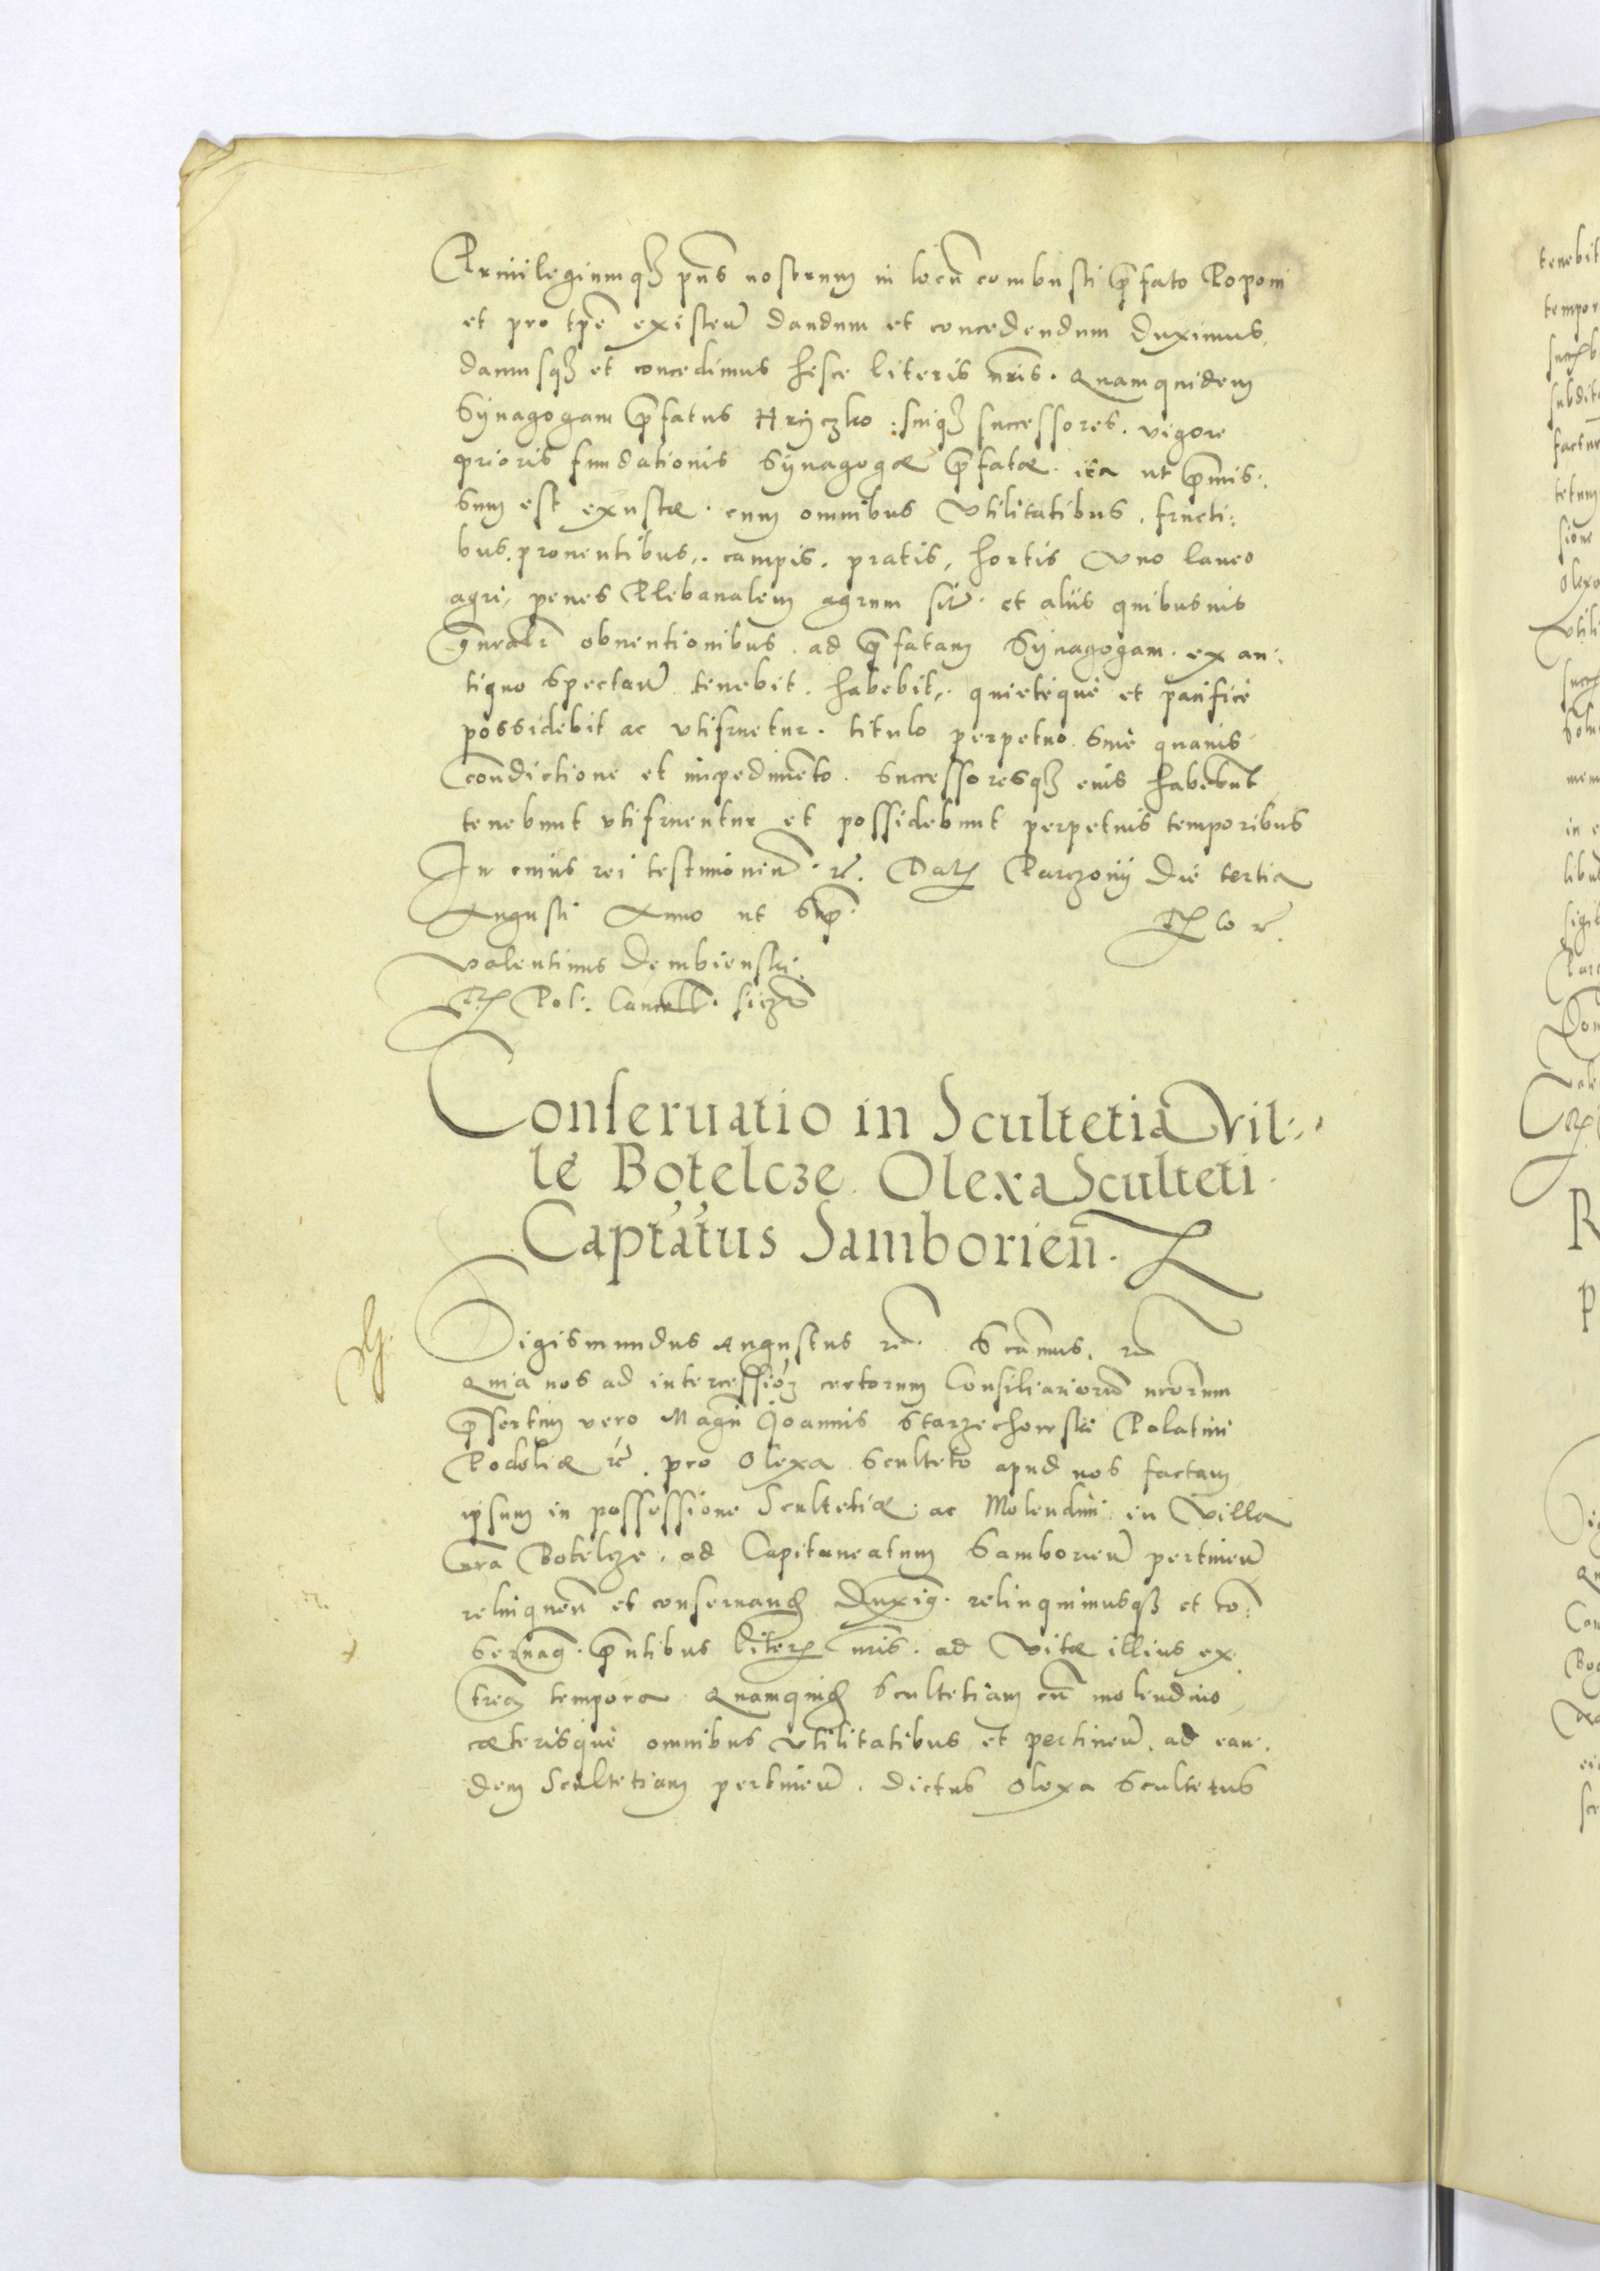 Priuilegiumq3 pns nostrum in locu combusti pfato Poponi
et pro tpe existen dandum et concedendum duximus,
damusq3 et concedimus hisce literis nris. Quamquidem
Synagogam pfatus Hryczko suiq3 successores. vigore
prioris fundationis Synagogæ pfatæ. ita ut pmis:
sum est exustæ. cum omnibus vtilitatibus, fructi:
bus, prouentibus, campis, pratis, hortis vno laneo
agri, penes Plebanalem agrum sit et aliis quibusuis
gnralr obuentionibus ad pfatam Synagogam ex an:
tiquo spectan tenebit, habebit, quietéque et pacificè
possidebit ac vtifruetur. titulo perpetuo. Sine quauis
condictione et impedimento. Successoresq3 eius habebunt
tenebunt vtifruentur et possidebunt perpetuis temporibus
In cuius rei testimonium rc. Datum Parczouij die tertia
Augusti Anno ut sup.
Valentinus Dembienski
R. Pol. Cancell. sszt
Conseruatio in Scultetia Vil:
le Botelcze Olexa Sculteti
Captatus Samborien.
Sigismundus Augustus rc. Scamus, rc
Quia nos ad intercession certorum Consiliarioru nrorum
psertim vero Magn Joannis Starzechowski Palatini
Podoliæ rc. pro Olexa Sculteto apud nos factam
ipsum in possessione Scultetiæ ac Molendini in Villa
nra Botelcze, ad Capitaneatum Samborien pertinen
relinquen et conseruand duxim. relinquimusq3 et con:
seruam. pntibus literis nris. ad vitæ illius ex
trema tempora. Quamquid Scultetiam cu molendino
cæterisque omnibus vtilitatibus et pertinen, ad ean:
dem Scultetiam pertinen. dictus Olexa Scultetus